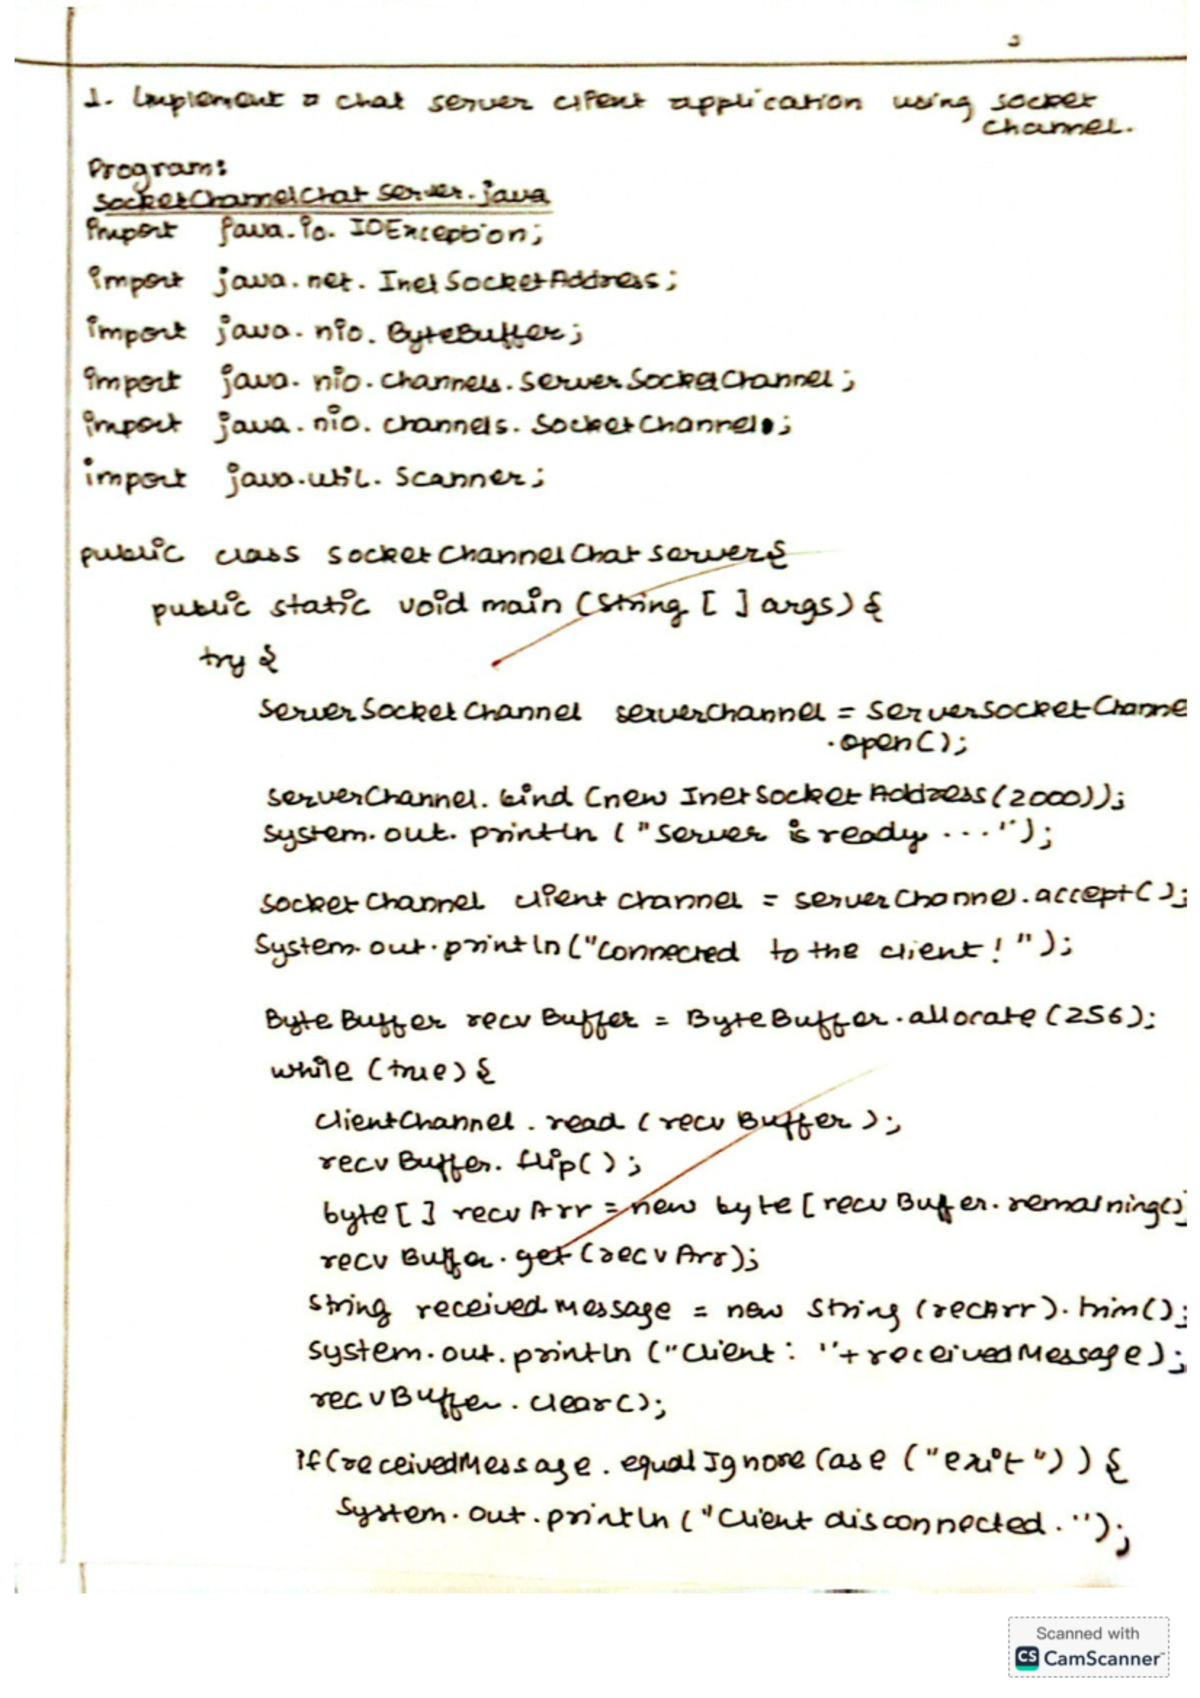 1. Implement a chat server client application using socket
channel.
Program:
SocketChannelChatServer.java
import java.io.IOException;
import java.net.InetSocketAddress;
import java.nio.ByteBuffer;
import java.nio.channels.ServerSocketChannel;
import java.nio.channels.SocketChannel;
import java.util.Scanner;
public class SocketChannelChatServer{
public static void main (String [ ] args) {
try {
ServerSocketChannel serverChannel = ServerSocketChanne
.open();
serverChannel.bind (new InetSocketAddress(2000));
System.out.println ("Server is ready ...");
SocketChannel clientChannel = serverChannel.accept();
System.out.println("Connected to the client!");
ByteBuffer recvBuffer = ByteBuffer.allocate(256);
while (true) {
clientChannel.read (recvBuffer);
recvBuffer.flip();
byte[ ] recvArr = new byte [recvBuffer.remaining()]
recvBuffer.get(recvArr);
String receivedMessage = new String (recArr).trim();
System.out.println ("Client: "+receivedMessage);
recvBuffer.clear();
if(receivedMessage.equalIgnoreCase ("exit")) {
System.out.println ("Client disconnected.");
Scanned with
CS CamScanner